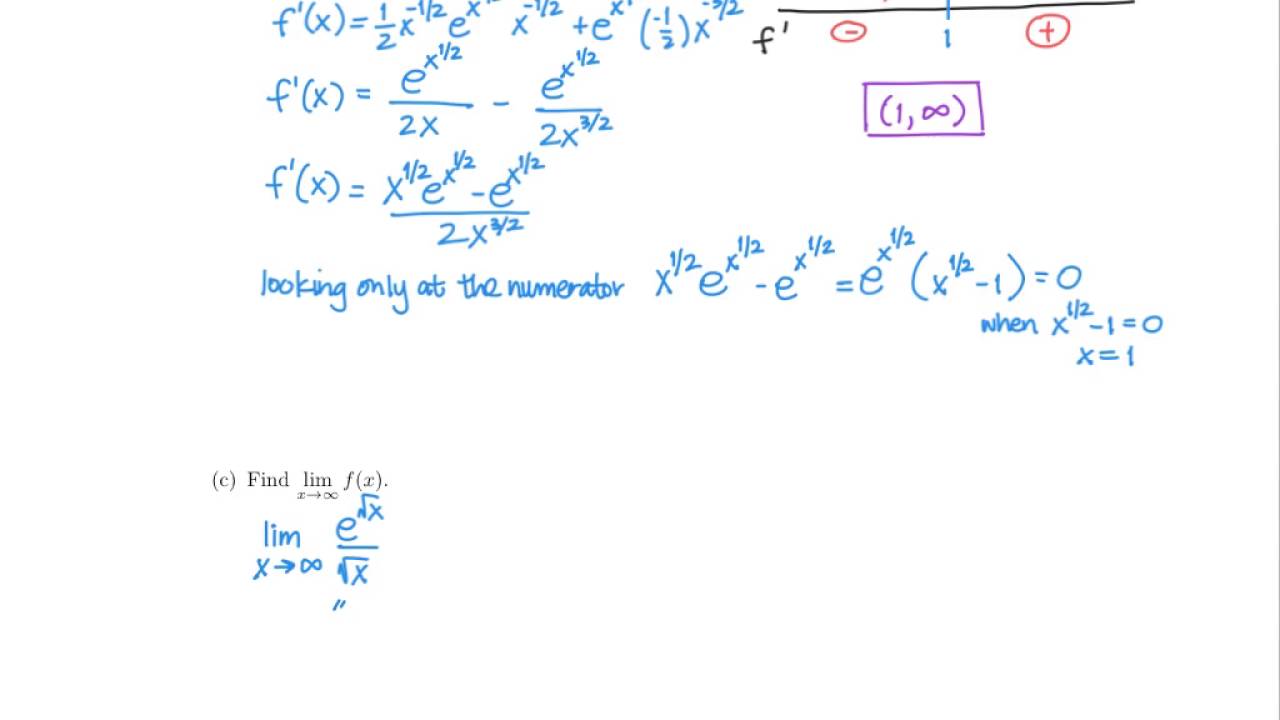 f'(x) = 1/2 x^(-1/2) e^(x^(1/2)) x^(-1/2) + e^(x^(1/2)) (-1/2) x^(-3/2)
f' ⊖ 1 ⊕
f'(x) = e^(x^(1/2)) / 2x - e^(x^(1/2)) / 2x^(3/2)
(1, ∞)
f'(x) = (x^(1/2) e^(x^(1/2)) - e^(x^(1/2))) / 2x^(3/2)
looking only at the numerator x^(1/2) e^(x^(1/2)) - e^(x^(1/2)) = e^(x^(1/2)) (x^(1/2) - 1) = 0
when x^(1/2) - 1 = 0
x = 1
(c) Find lim x→∞ f(x).
lim x→∞ e^(√x) / √x
"